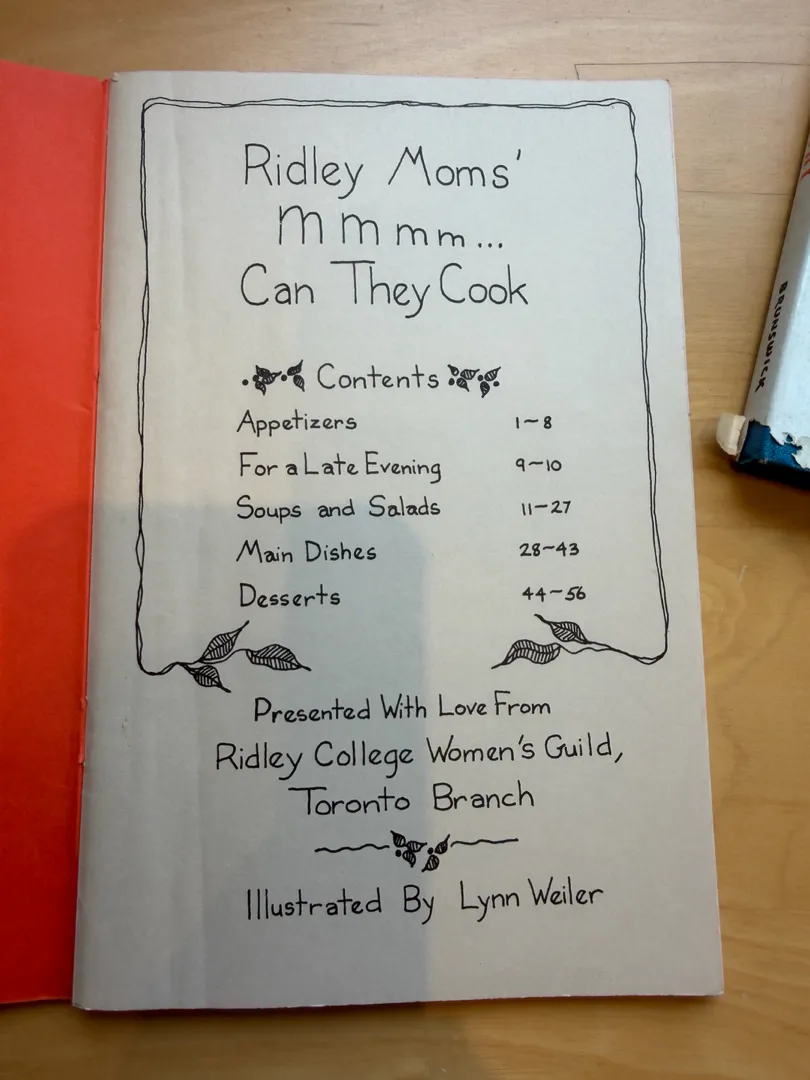 Ridley Moms'
Mmmm...
Can They Cook
Contents
Appetizers 1~8
For a Late Evening 9~10
Soups and Salads 11-27
Main Dishes 28~43
Desserts 44~56
Presented With Love From
Ridley College Women's Guild,
Toronto Branch
Illustrated By Lynn Weiler
BRUNSWICK